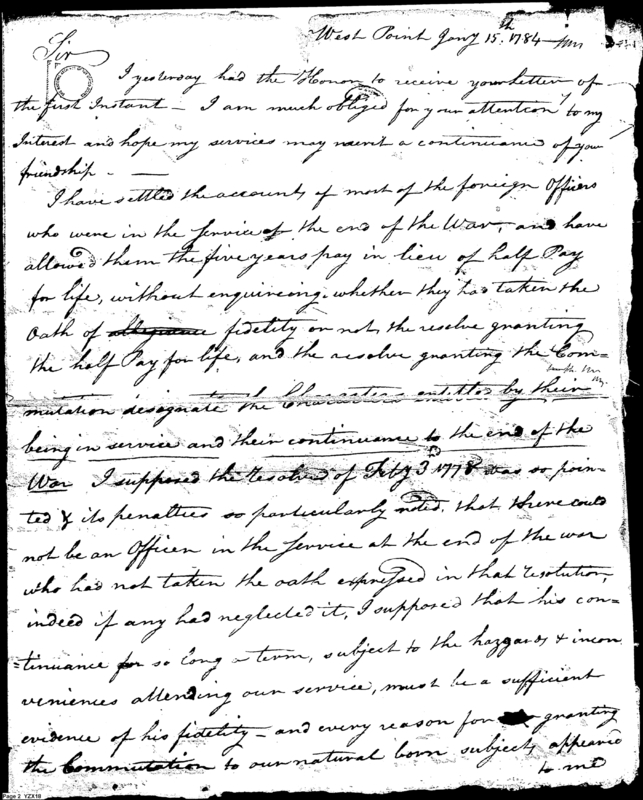 West Point Jany 15th 1784
Sir
I yesterday had the Honor to receive your letter of
the first Instant — I am much obliged for your attention to my
Interest and hope my services may merit a continuance of your
friendship. —
I have settled the accounts of most of the foreign Officers
who were in the Service at the end of the War, and have
allowed them the five years pay in lieu of half Pay
for life, without enquireing whether they had taken the
Oath of allegiance fidelity or not, the resolve granting
the half Pay for life, and the resolve granting the Com=
mutation designate the Characters entitled by their
being in service and their continuance to the end of the
War I supposed the resolve of Feby 3 1778 was so poin=
ted & its penalties so particularly noted, that there could
not be an Officer in the Service at the end of the war
who had not taken the oath expressed in that resolution,
indeed if any had neglected it, I supposed that his con=
=tinuance for so long a term, subject to the hazzards & incon
veniences attending our service, must be a sufficient
evidence of his fidelity — and every reason for granting
the Commutation to our natural born subjects appeared
to me
Page 2 YZX18